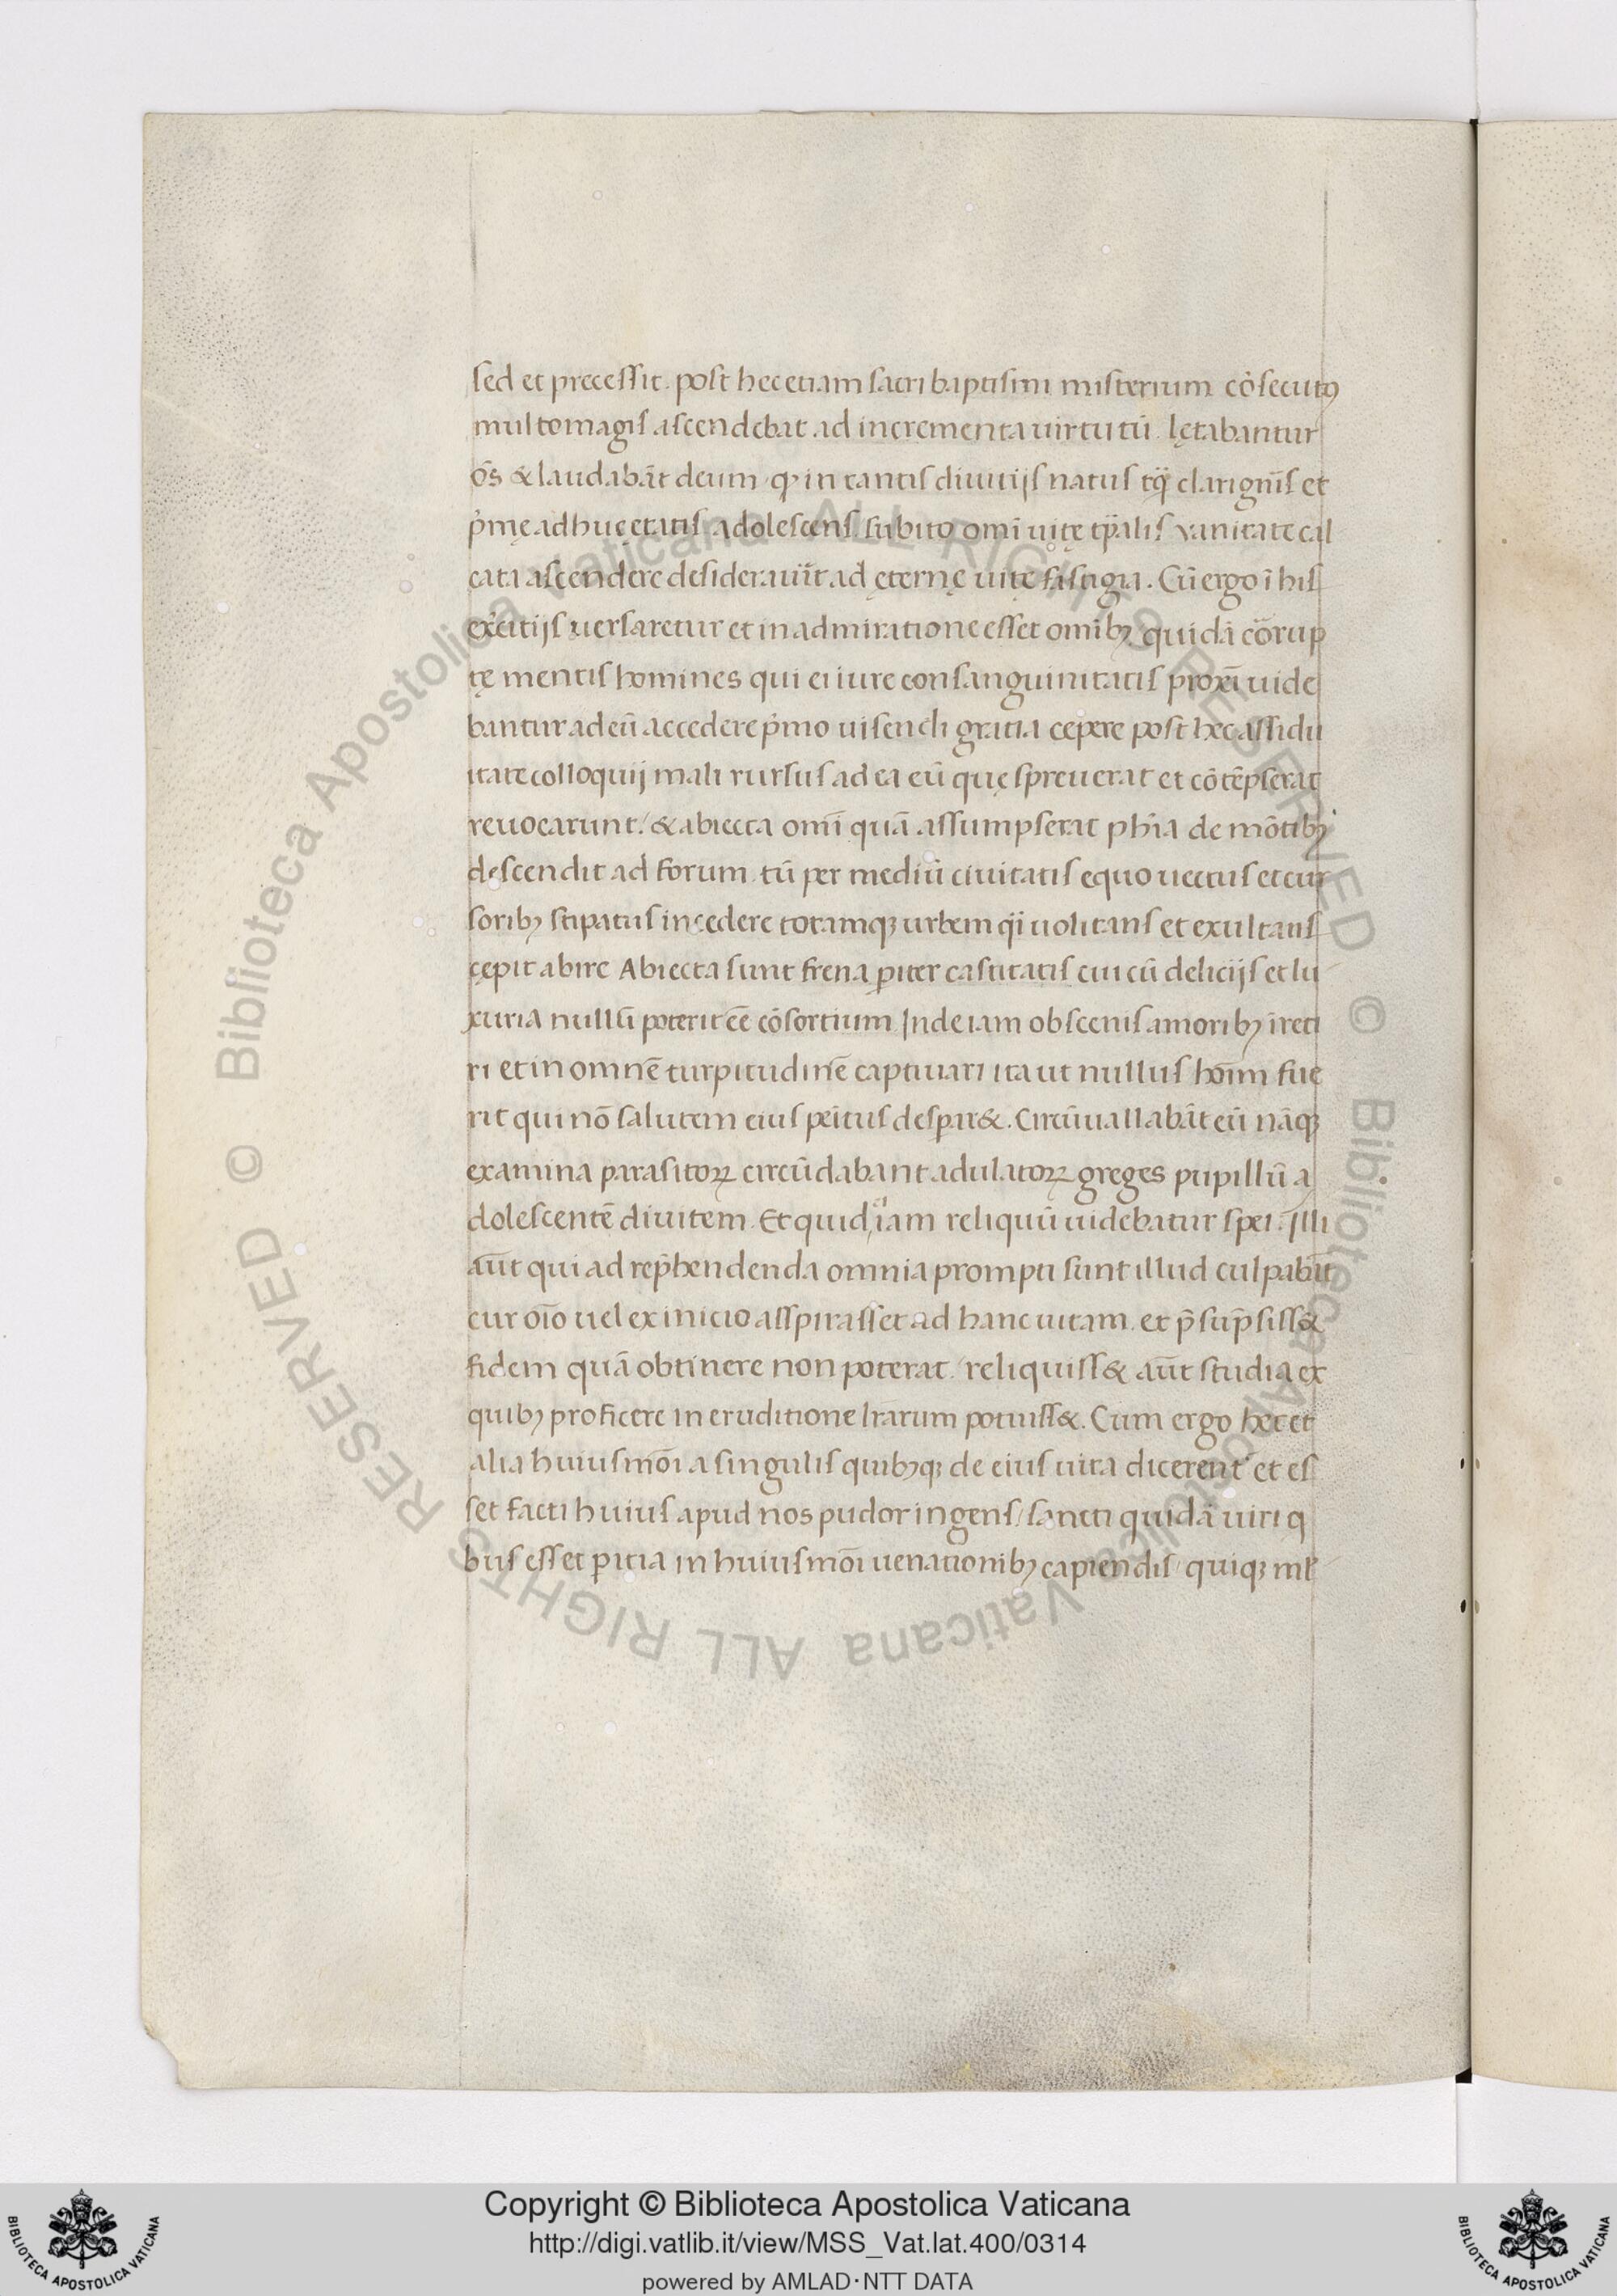 sed et precessit. post hec etiam sacri baptismi misterium cōsecutꝰ
multo magis ascendebat ad incrementa uirtutū. lętabantur
oēs & laudabāt deum ꝙ in tantis diuitijs natus tąꝫ clari gnīs et
p̄mę adhuc ętatis adolescens subito omī uitę tp̄alis vanitate cal
cata ascendere desiderauit ad ęternę uitę fastigia. Cū ergo ī his
ex̄citijs uersaretur et in admiratione esset omībꝫ quidā corrup
tę mentis homines qui ei iure consanguinitatis proxī uide
bantur ad eū accedere p̄mo uisendi gratia cepere post hec assidu
itate colloquij mali rursus ad ea eū quę spreuerat et cōtēpserat
reuocarunt. & abiecta omī quā assumpserat phīa de mōtibꝫ
descendit ad forum. tū per mediū ciuitatis equo uectus et cur
soribꝫ stipatus incedere totamqꝫ urbem q̄i uolitans et exultans
cępit abire Abiecta sunt frena ꝑiter castitatis cui cū delicijs et lu
xuria nullū poterit eē cōsortium. Inde iam obscenis amoribꝫ īreti
ri et in omnē turpitudinē captiuari ita ut nullus hoīm fue
rit qui nō salutem eius peītus despar&. Circūuallabāt eū nāqꝫ
examina parasitoꝝ circūdabant adulatoꝝ greges pupillū a
dolescentē diuitem. Et quid iam reliquū uidebatur spei. Illi
aūt qui ad rep̄hendenda omnia prompti sunt illud culpabāt
cur oīo uel ex inicio asspirasset ad hanc uitam. et p̄sūpsiss&
fidem quā obtinere non poterat / reliquiss& aūt studia ex
quibꝫ proficere in eruditione lr̄arum potuiss&. Cum ergo hec et
alia huiusmōi a singulis quibꝫqꝫ de eius uita dicerent' et es
set facti huius apud nos pudor ingens / sancti quidā uiri q
bus esset ꝑitia in huiusmōi uenationibꝫ capiendis / quiqꝫ ml̄
Copyright © Biblioteca Apostolica Vaticana
http://digi.vatlib.it/view/MSS_Vat.lat.400/0314
powered by AMLAD·NTT DATA
BIBLIOTECA APOSTOLICA VATICANA
BIBLIOTECA APOSTOLICA VATICANA
© Biblioteca Apostolica Vaticana ALL RIGHTS RESERVED © Biblioteca Apostolica Vaticana ALL RIGHTS RESERVED